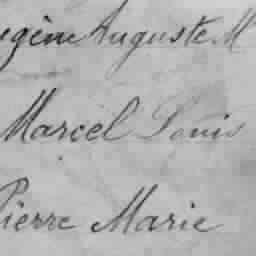 ugène Auguste M
Marcel Louis
Pierre Marie